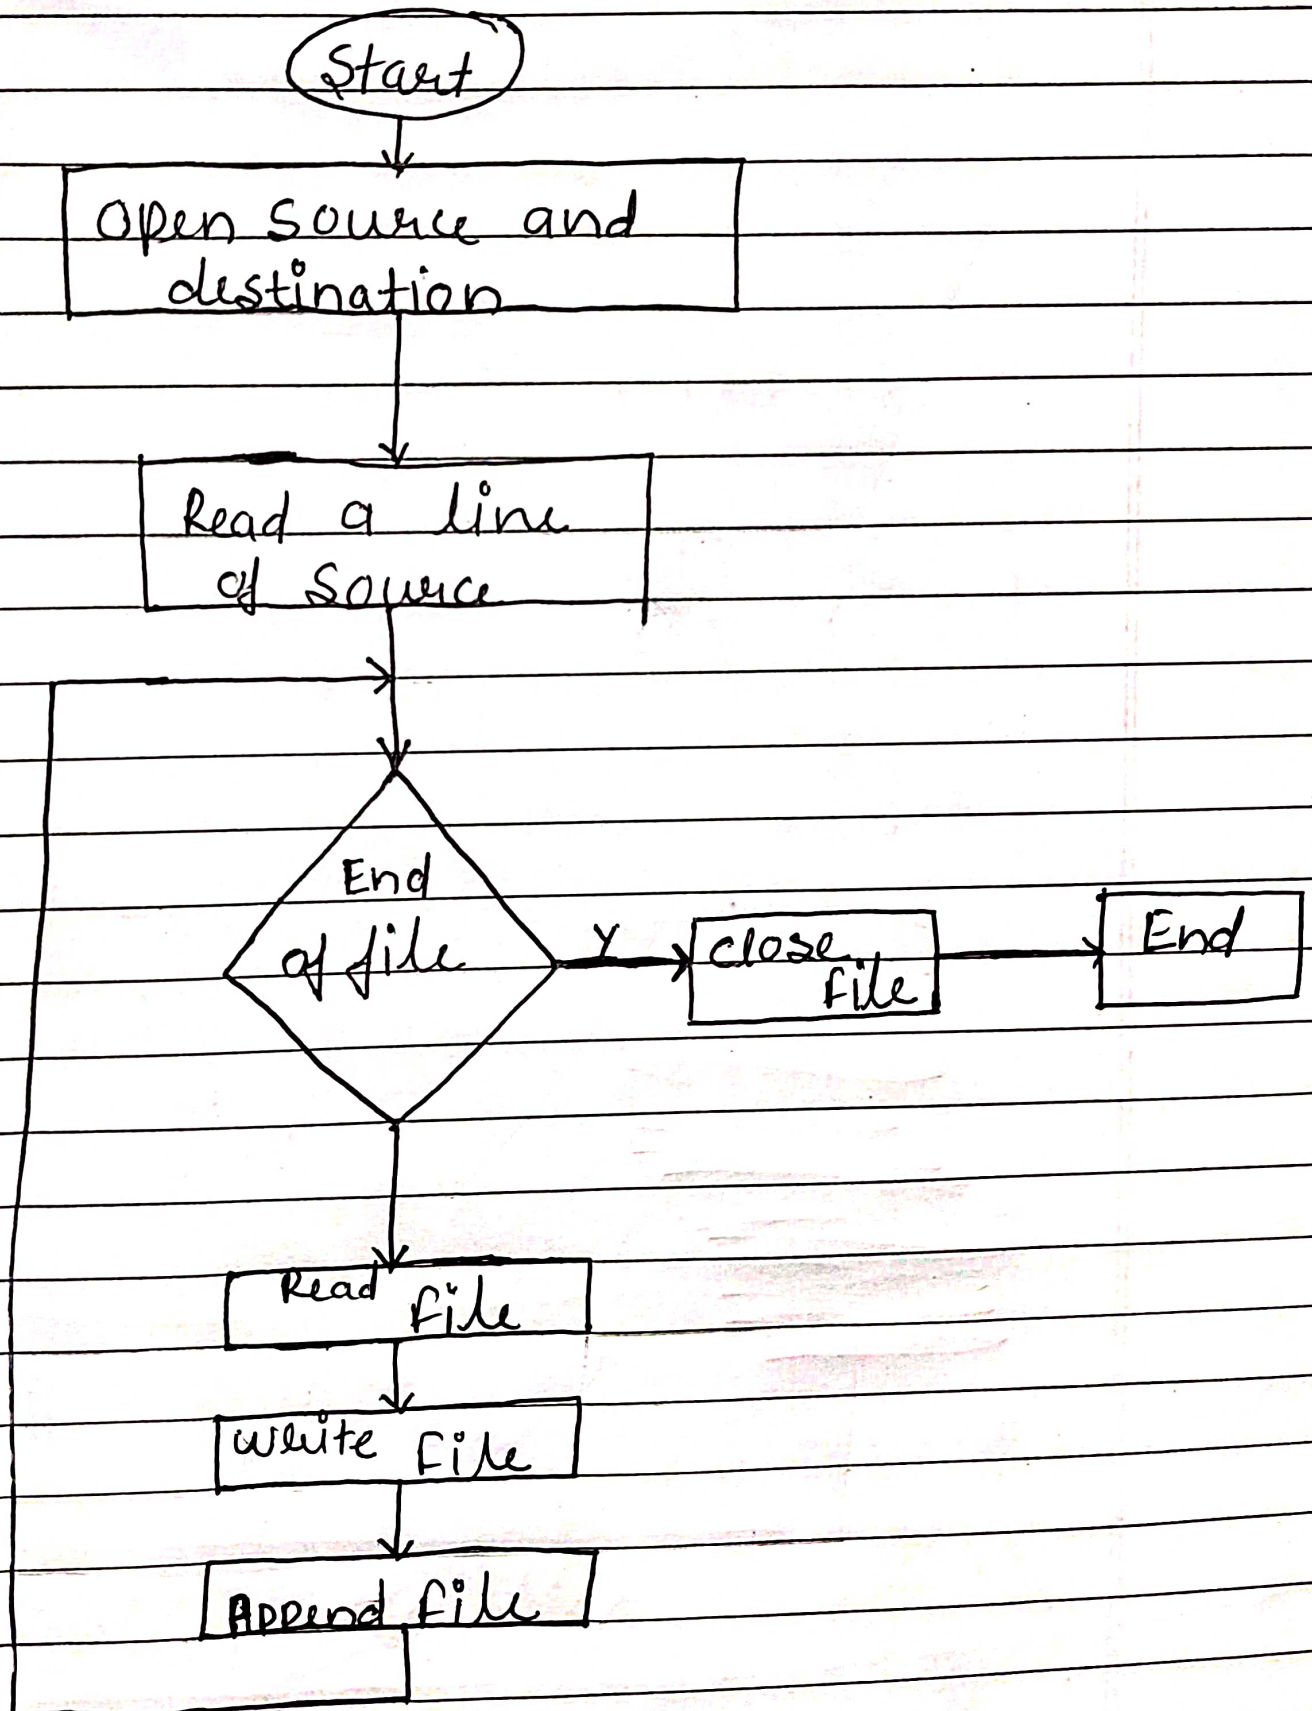 Start
Open source and
destination
Read a line
of source
End
of file
Y
close
file
End
Read file
write file
Append file